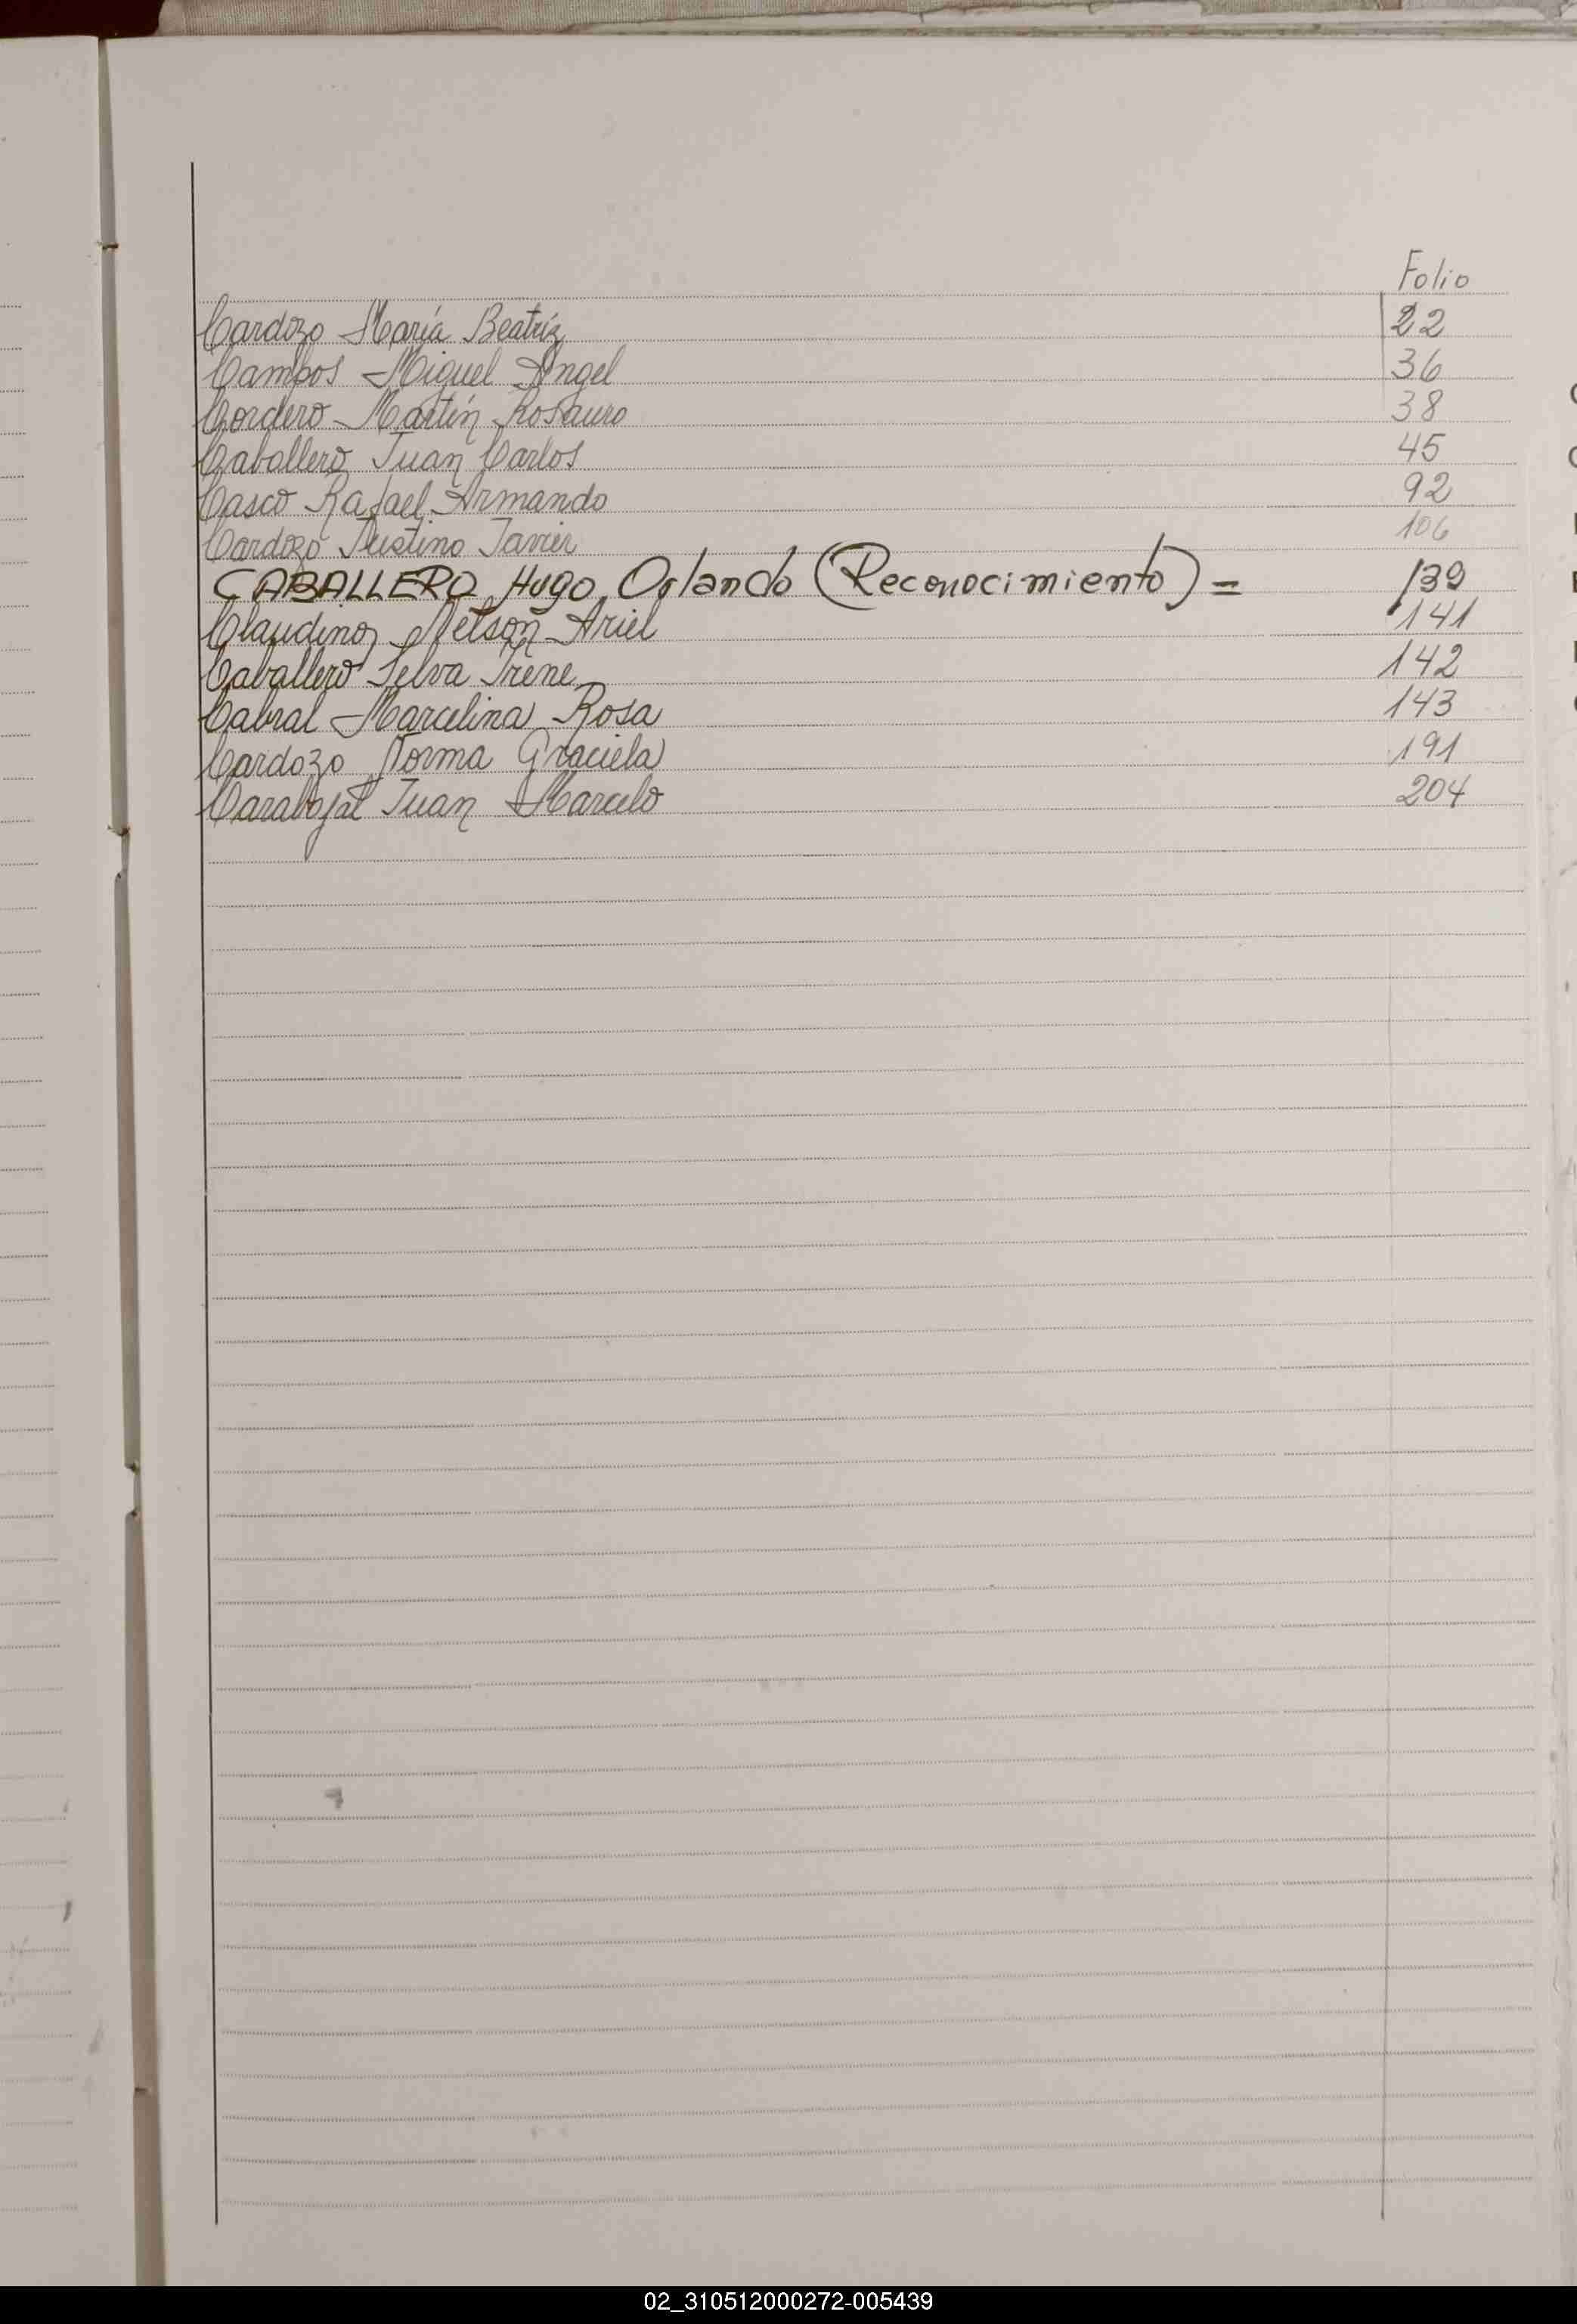 Folio
Cardozo María Beatríz 22
Campos Miguel Angel 36
Cordero Martín Rosauro 38
Caballero Juan Carlos 45
Casco Rafael Armando 92
Cardozo Faustino Javier 106
CABALLERO, Hugo Orlando (Reconocimiento) = 139
Claudino, Nelson Ariel 141
Caballero Selva Irene 142
Cabral Marcelina Rosa 143
Cardozo Norma Graciela 191
Carabajal Juan Marcelo 204
02_310512000272-005439